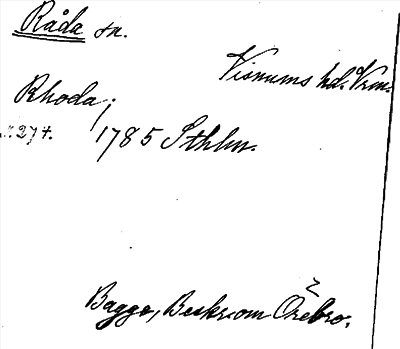 Råda sn.
Visnums hd. Vrm.
Rhoda;
s. 274. 1785 Sthlm.
Bagge, Beskr. om Örebro.